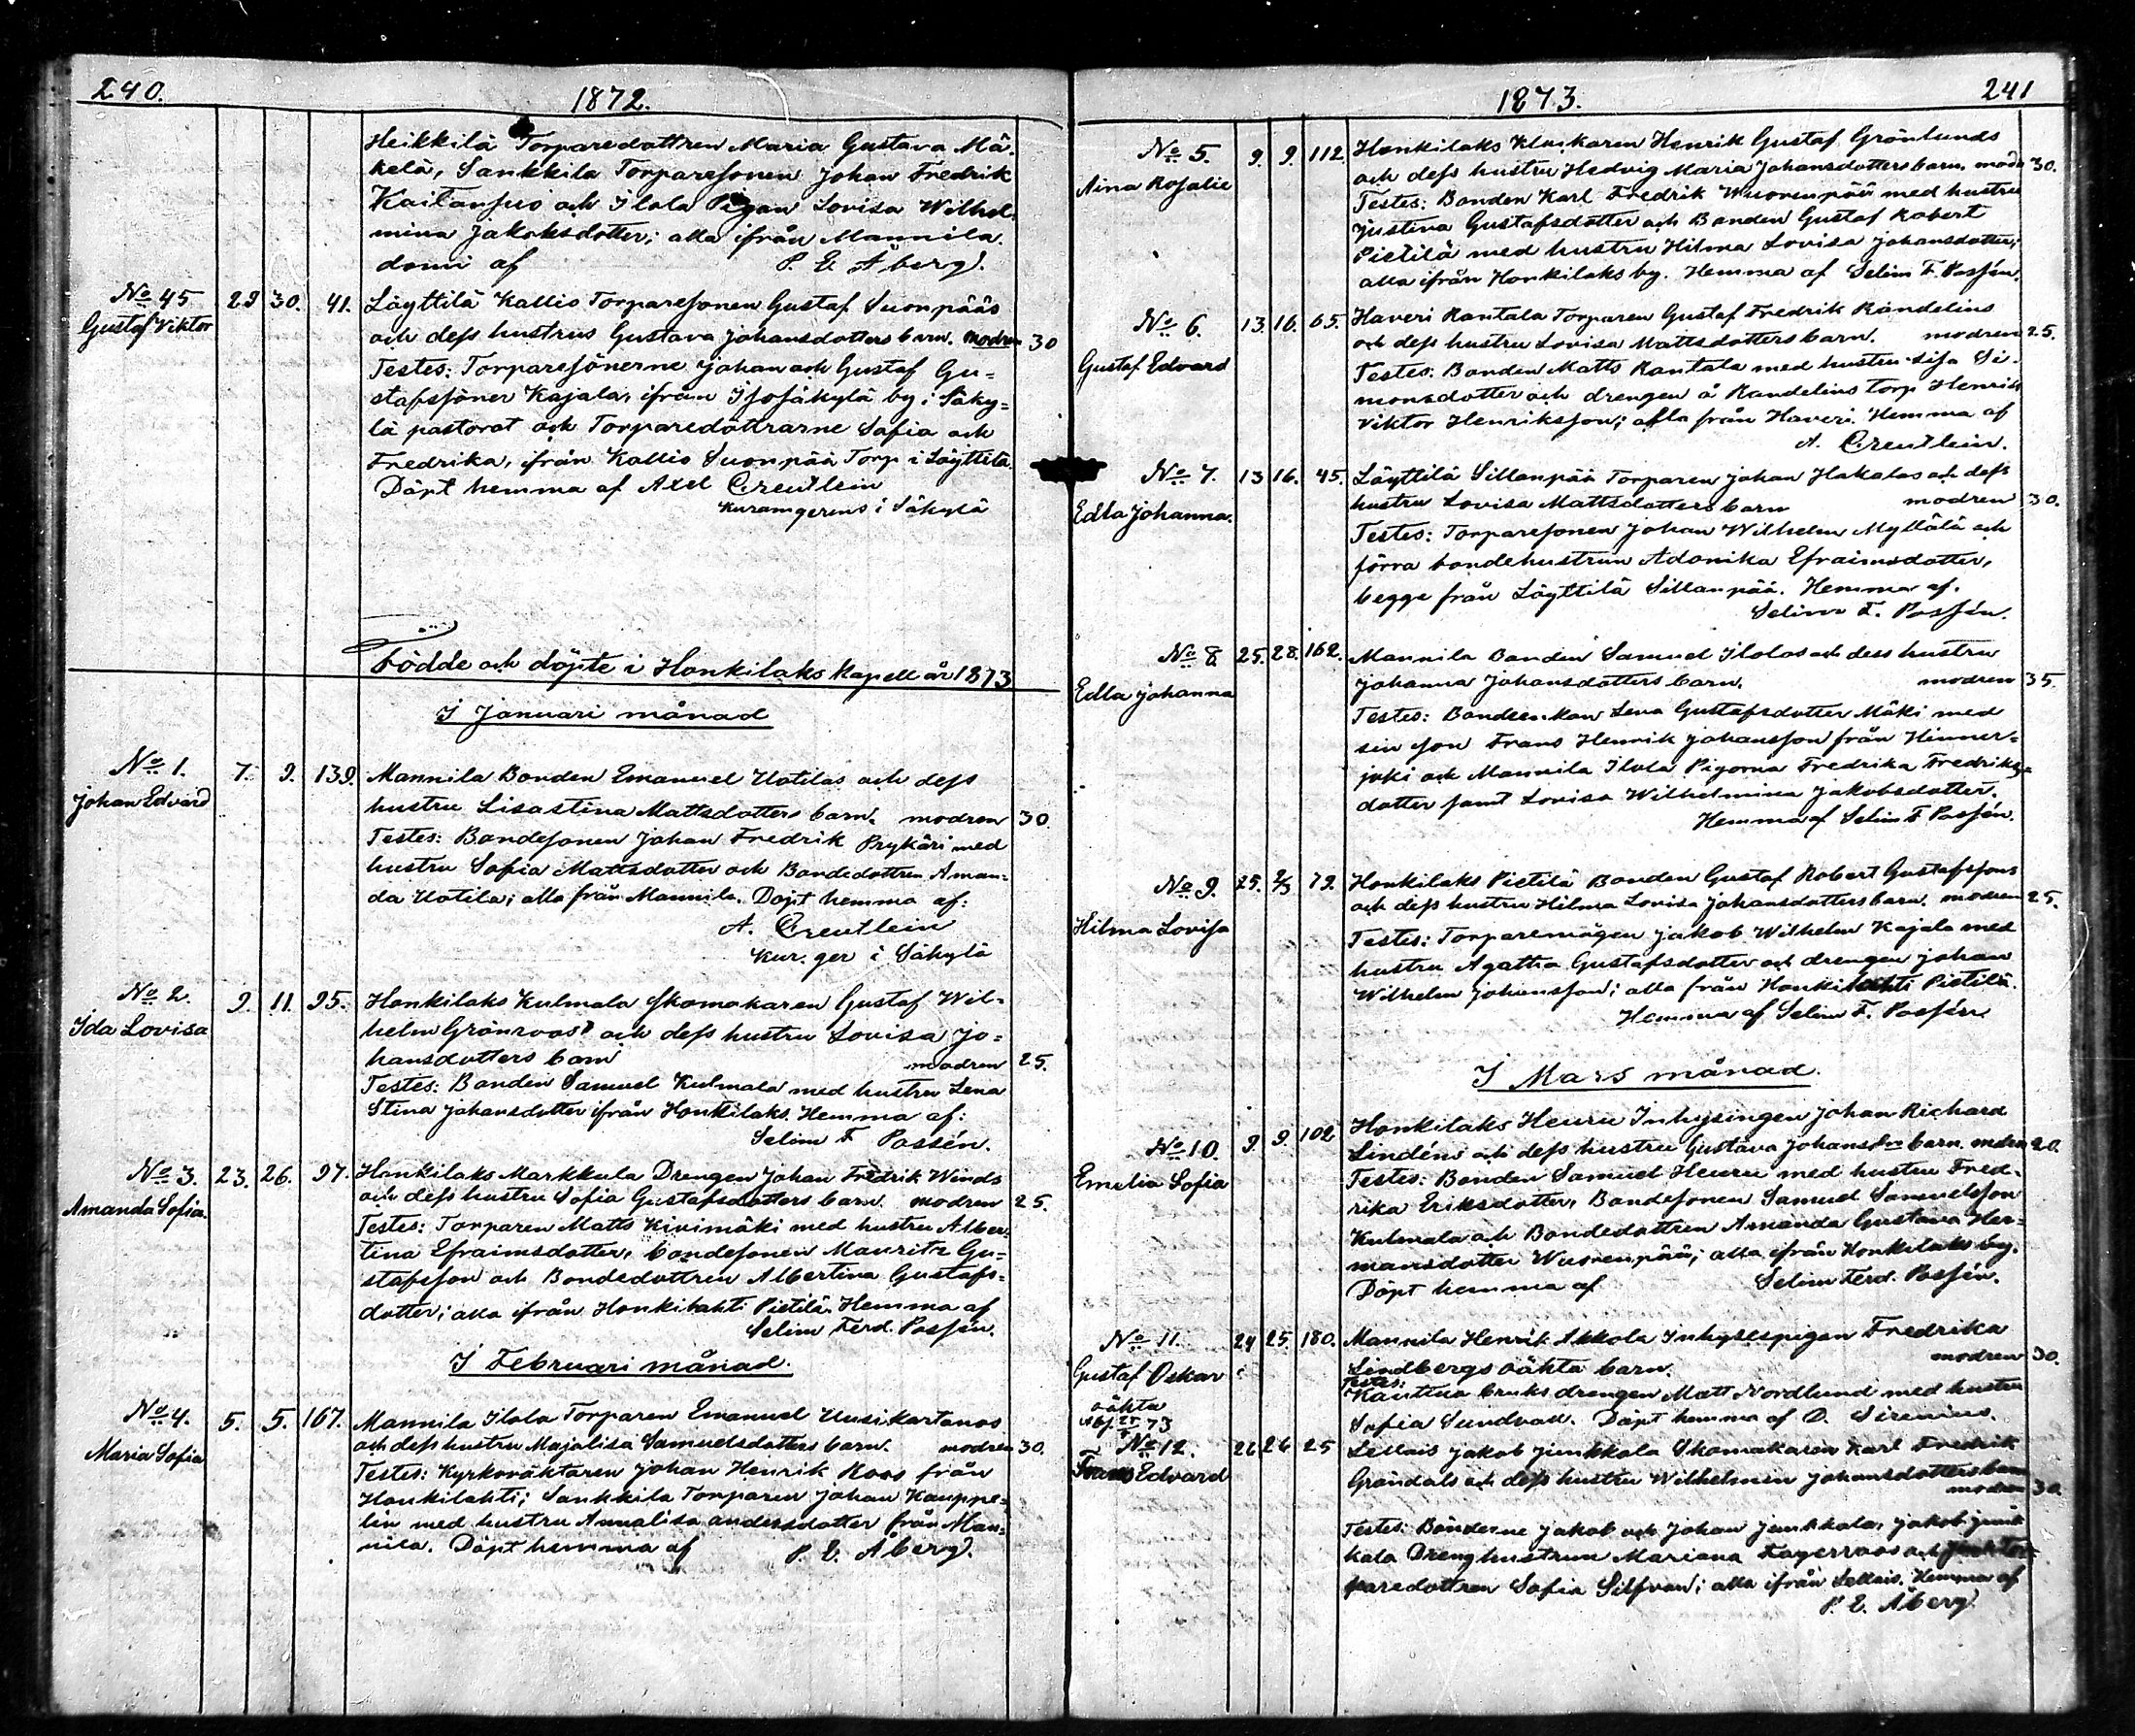 240.
1872.
Heikkilä Torparedottren Maria Gustava Mä-
kelä, Sankkila Torparesonen Johan Fredrik
Kaitansuo och Ilola Pigan Lovisa Wilhel-
mina Jakobsdotter; alla ifrån Mannila.
domi af P. E. Åberg.
No 45 29 30. 41. Löyttilä Kallio Torparesonen Gustaf Suonpääs
Gustaf Viktor
och dess hustrus Gustava Johansdotters barn. modren 30
Testes: Torparesönerne Johan och Gustaf Gu-
stafssöner Kajala, ifrån Isosäkylä by i Säky-
lä pastorat och Torparedöttrarne Sofia och
Fredrika, ifrån Kallio Suonpää Torp i Löyttilä.
Döpt hemma af Axel Creutlein
Kuramgerens i Säkylä
Födde och döpte i Honkilaks Kapell år 1873
I Januari månad
No 1. 7. 9. 139. Mannila Bonden Emanuel Uotilas och dess
Johan Edvard
hustru Lisastina Mattsdotters barn. modren 30
Testes: Bondesonen Johan Fredrik Prykäri med
hustru Sofia Mattsdotter och Bondedottren Aman-
da Uotila; alla från Mannila. Döpt hemma af:
A. Creutlein
Kur. ger i Säkylä
No 2. 9. 11. 95. Honkilaks Kulmala Skomakaren Gustaf Wil-
Ida Lovisa
helm Grönroos och dess hustru Lovisa Jo-
hansdotters barn modren 25.
Testes: Bonden Samuel Kulmala med hustru Lena
Stina Johansdotter ifrån Honkilaks. Hemma af:
Selim F Possén.
No 3. 23. 26. 97. Honkilaks Markkula Drengen Johan Fredrik Winds
Amanda Sofia.
och dess hustru Sofia Gustafsdotters barn. modren 25.
Testes: Torparen Matts Kivimäki med hustru Alber-
tina Efraimsdotter, bondesonen Mauritz Gu-
stafsson och Bondedottren Albertina Gustafs-
dotter; alla ifrån Honkilahti Pietilä. Hemma af
Selim Ferd. Possén.
I Februari månad.
No 4. 5. 5. 167. Mannila Ilola Torparen Emanuel Uusikartanos
Maria Sofia
och dess hustru Majalisa Samuelsdotters barn. modren 30.
Testes: Kyrkoväktaren Johan Henrik Roos från
Honkilahti; Sankkila Torparen Johan Kauppe-
lin med hustru Annalisa andersdotter från Man-
nila. Döpt hemma af P. E. Åberg.
1873.
241
No 5. 9. 9. 112. Honkilaks Klockaren Henrik Gustaf Grönlunds
Aina Rosalie
och dess hustru Hedvig Maria Johansdotters barn. modr 30.
Testes: Bonden Karl Fredrik Wuorenpää med hustru
Justina Gustafsdotter och Bonden Gustaf Robert
Pietilä med hustru Hilma Lovisa Johansdotter;
alla ifrån Honkilaks by. Hemma af Selim F. Possén.
No 6. 13. 16. 65. Haveri Rantala Torparen Gustaf Fredrik Randelins
Gustaf Edvard
och dess hustru Lovisa Mattsdotters barn. modren 25.
Testes: Bonden Matts Rantala med hustru Lisa Si-
monsdotter och drengen å Randelins torp Henrik
Viktor Henriksson; alla från Haveri. Hemma af
A. Creutlein.
No 7. 13 16. 45. Löyttilä Sillanpää Torparen Johan Hakalas och dess
Edla Johanna.
hustru Lovisa Mattsdotters barn modren 30.
Testes: Torparesonen Johan Wilhelm Myllälä och
förra bondehustrun Adonika Efraimsdotter,
begge från Löyttilä Sillanpää. Hemma af.
Selim F. Possén.
No 8. 25. 28. 162. Mannila Bonden Samuel Ilolas och dess hustru
Edla Johanna
Johanna Johansdotters barn. modren 35.
Testes: Bondeenkan Lena Gustafsdotter Mäki med
sin son Frans Henrik Johansson från Hinner-
joki och Mannila Ilola Pigorna Fredrika Fredriks-
dotter samt Lovisa Wilhelmina Jakobsdotter.
Hemma af Selim F Possén.
No 9. 25. 2/3 79. Honkilaks Pietilä Bonden Gustaf Robert Gustafssons
Hilma Lovisa
och dess hustru Hilma Lovisa Johansdotters barn. modren 25.
Testes: Torparemågen Jakob Wilhelm Kajala med
hustru Agatha Gustafsdotter och drengen Johan
Wilhelm Johansson; alla från Honkilahti Pietilä.
Hemma af Selim F. Possén
I Mars månad.
No 10. 9. 9. 102 Honkilaks Heuru Inhysingen Johan Richard
Emelia Sofia
Lindéns och dess hustru Gustava Johansdrs barn. modren 20.
Testes: Bonden Samuel Heuru med hustru Fred-
rika Eriksdotter, Bondesonen Samuel Samuelsson
Kulmala och Bondedottren Amanda Gustava Her-
mansdotter Wuorenpää; alla ifrån Honkilaks by.
Döpt hemma af Selim Ferd. Possén.
No 11. 24 25. 180. Mannila Henrik Akkola Inhysespigan Fredrika
Gustaf Oskar
oäkta
Lindbergs oäkta barn. modren 30.
Testes:
Kauttua bruks drengen Matt Nordlund med hustru
Sofia Sundvall. Döpt hemma af D. Sirenius.
No 12. 26 26 25 Lellais Jakob Junkkola Skomakaren Karl Fredrik
Frans Edvard
Gröndals och dess hustru Wilhelmin Johansdotters barn
modren 30
Testes: Bönderne Jakob och Johan Junkkala, Jakob Junk
kala Drenghustrun Mariana Fagerroos och
paredottren Sofia Silfvan; alla ifrån Lellais. Hemma af
P. E. Åberg.